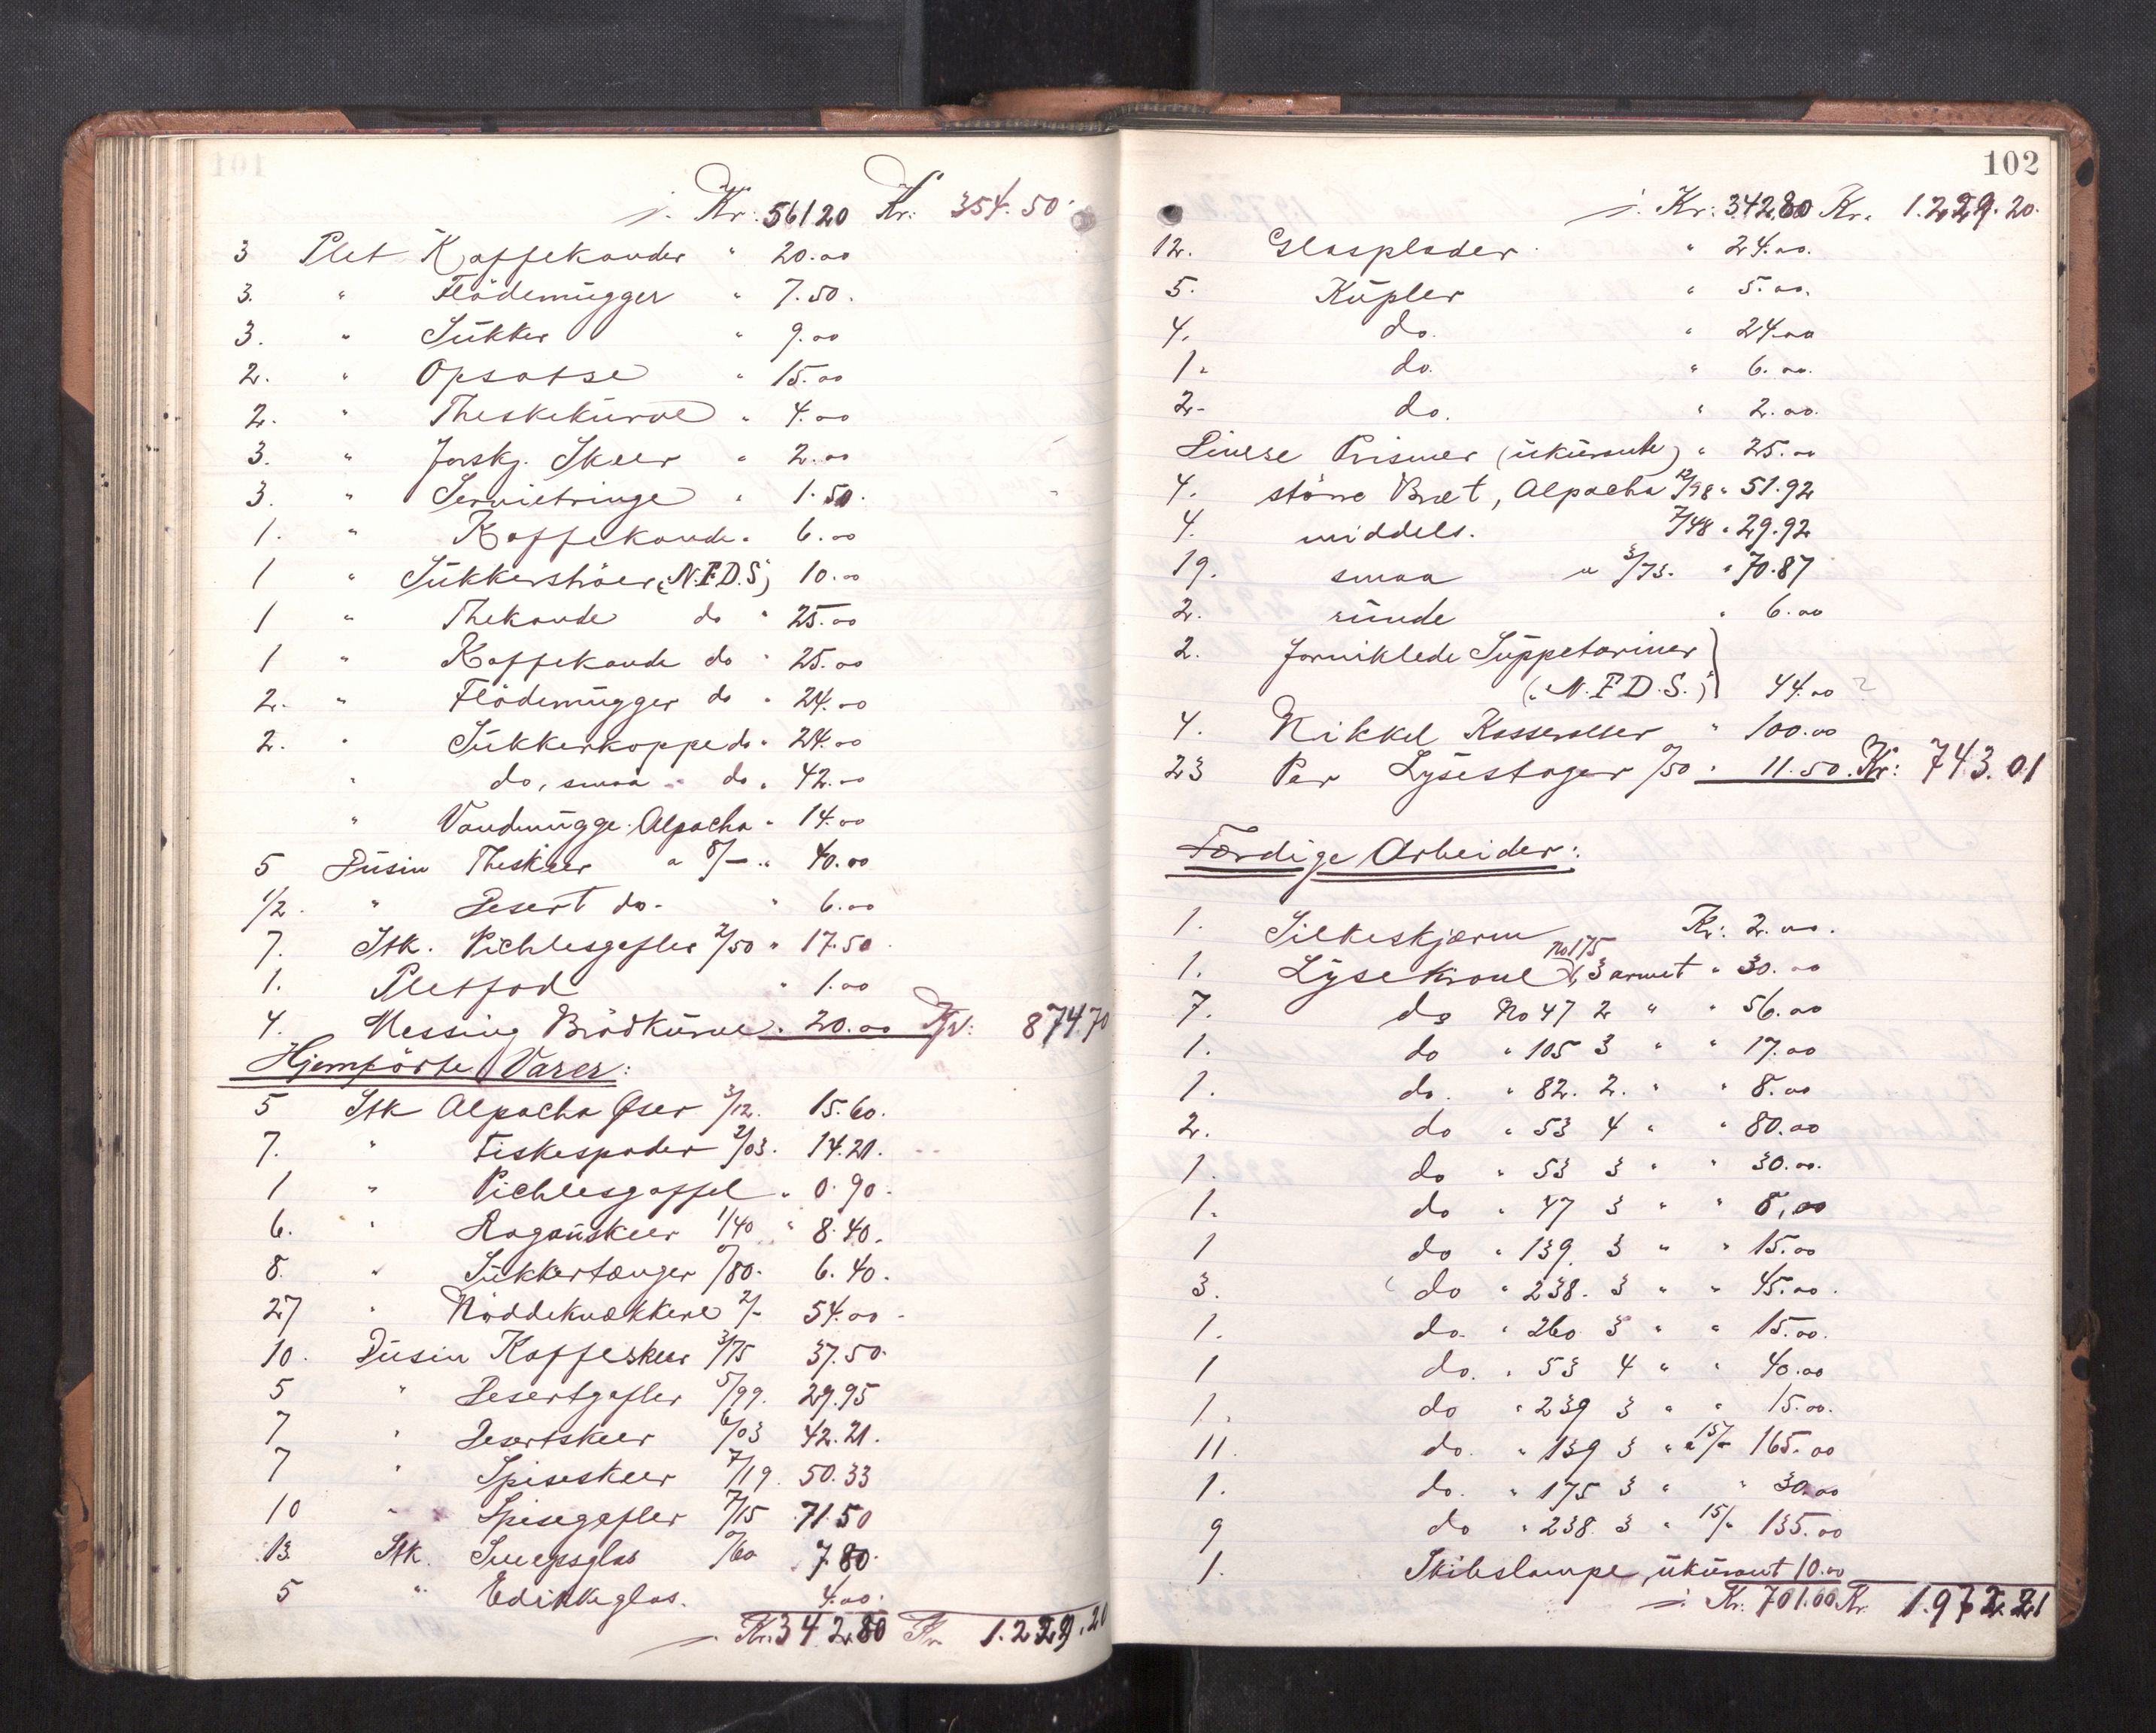 101
/. Kr: 561 20 Kr: 354.50.
3 Plet Kaffekander " 20.00
3. " Flödemugger " 7.50.
3. " Sukker " 9.00
2. " Opsatse " 15.00
2. " Theskekurve " 4.00
3. " Forskj. Skeer " 2.00
3. " Servietringe " 1.50.
1. " Kaffekande " 6.00
1 " Sukkerströer (N.F.D.S) 10.00
1 " Thekande do " 25.00
1 " Kaffekande do " 25.00
2. " Flödemugger do " 24.00
2. " Sukkerkoppe do " 24.00
" do, smaa " do " 42.00
" Vandmugge Alpacha " 14.00
5 Dusin Theskeer a 8/- " 40.00
1/2 " Desert do. " 6.00
7. Stk. Pichlesgafler 2/50 " 17.50
1. Pletfad " 1.00
4. Messing Brödkurve " 20.00 Kr: 874.70
Hjemförte Varer:
5 Stk Alpacha Öser 3/12. 15.60.
7. " Fiskespader 2/03. 14.21.
1 " Pichlesgaffel " 0.90.
6. " Ragouskeer 1/40 " 8.40.
8. " Sukkertænger 0/80. 6.40.
27 " Nöddeknækkere 2/- 54.00
10. Dusin Kaffeskeer 3/75 37.50.
5 " Desertgafler 5/99. 29.95
7 " Desertskeer 6/03 42.21.
7 " Spiseskeer 7/19. 50.33
10 " Spisegafler 7/15 71.50
13. Stk. Snepsglas 0/60 7.80.
5 " Edikkeglas. 4.00.
/. Kr. 342.80 Kr 1.229.20
102
/. Kr: 342.80 Kr. 1.229.20.
12. Glasplader " 24.00.
5. Kupler " 5.00.
4. do. " 24.00
1. do. " 6.00.
2. do. " 2.00.
Diverse Prismer (ukurante) " 25.00
4. större Bræt, Alpacha 12/98 " 51.92
4. middels. 7/48 " 29.92
19. smaa a 3/73. " 70.87
2. runde " 6.00
2. Forniklede Suppetariner
(N.F.D.S.) 44.00 ?
4. Nikkel Kasseroller " 100.00
23 Par Lysestager 0/50 " 11.50. Kr: 743.01
Færdige Arbeider:
1. Silkeskjærm Kr: 2.00.
1. Lysekrone No 175 3 armet " 30.00
7. do No 47 2 " " 56.00
1. do " 105 3 " " 17.00
1. do. " 82. 2. " " 8.00
2. do " 53 4 " " 80.00
1. do " 53 3 " " 30.00.
1. do " 47 3 " " 8.00
1 do " 139. 3 " " 15.00
3. do " 238. 3 " " 45.00.
1. do. " 260 3 " " 15.00.
1 do. " 53 4 " " 40.00
1. do " 239 3 " " 15.00.
11. do. " 139 3 " a 15/- 165.00
1. do. " 175 3 " " 30.00
9 do " 238. 3 " 15/- 135.00
1. Skibslampe, ukurant 10.00
/. Kr. 701.00 Kr. 1.972.21